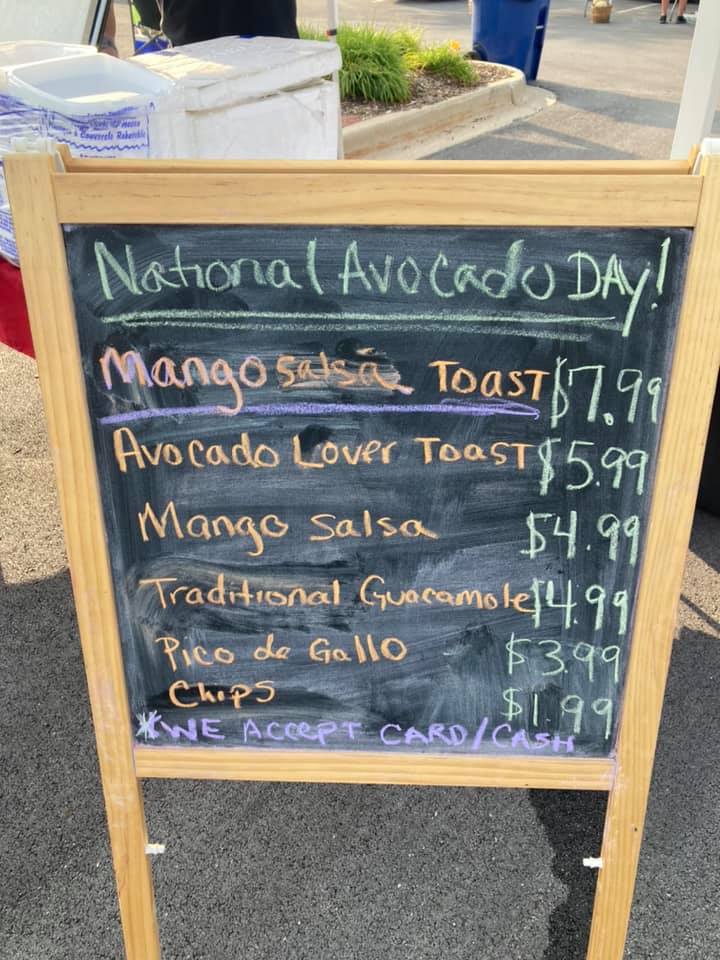 National Avocado DAY!
Mango salsa TOAST $7.99
Avocado Lover TOAST $5.99
Mango Salsa $4.99
Traditional Guacamole $4.99
Pico de Gallo - $3.99
Chips $1.99
*WE ACCEPT CARD/CASH